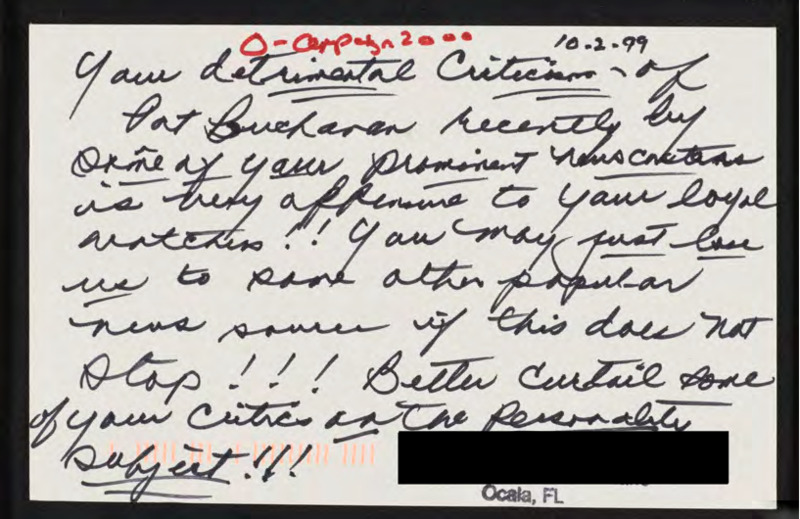 O-Campaign 2000
10-2-99
Your detrimental Criticism - of
Pat Buchanan recently by
some of your prominent newscasters
is very offensive to your loyal
watchers!! You may just lose
us to some other popular
news source if this does not
Stop!!! Better Curtail some
of your critics on the Personality
subject!!!
Ocala, FL